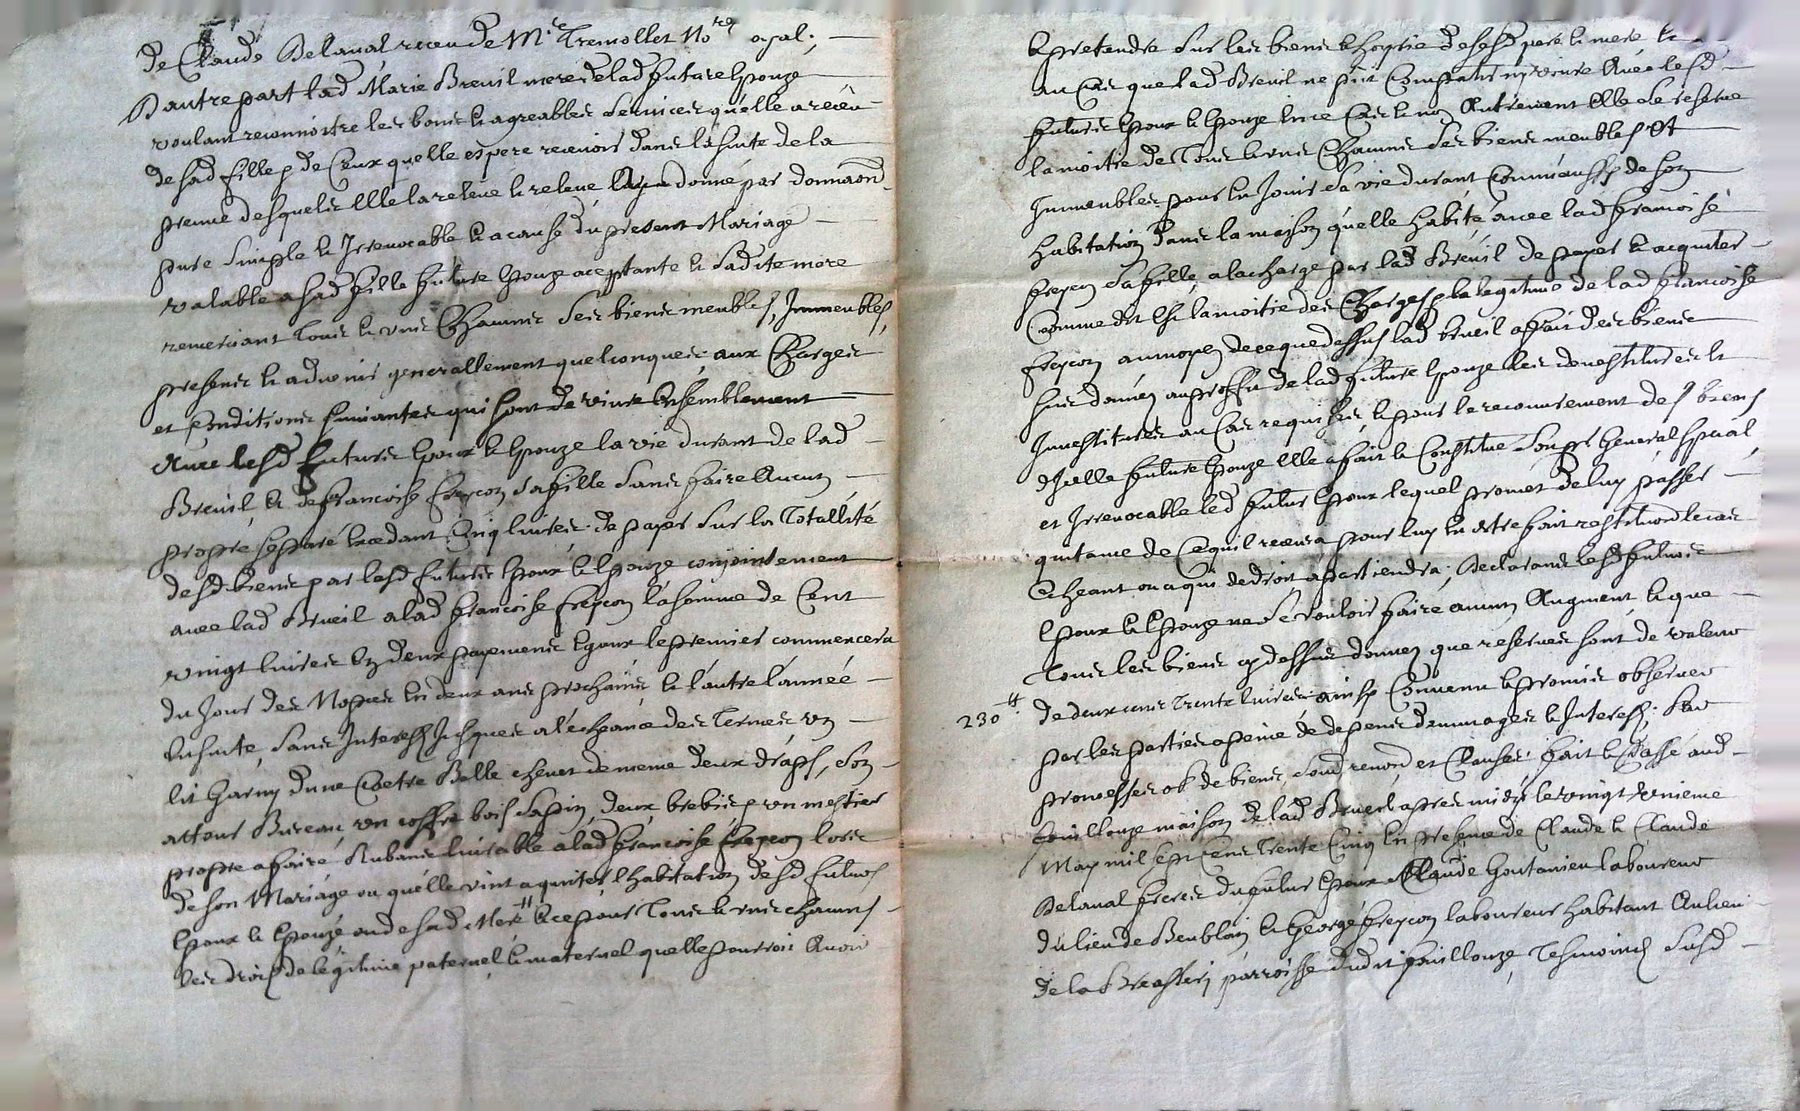 de Claude Delaval receu de Mr Tremollet No.re royal;
D'autre part lad Marie Breuil mere de lad future Epouze
voulant reconnoitre les bons et agreables services qu'elle a receu
de sad fille et de Ceux quelle espere recevoir dans la suite de la
preuve desquels Elle la releve et releve a donné par donnaon
pure simple et Irrevocable a cause du present Mariage
valable a sad fille future Epouze aceptante et sadite mere
remerciant Tous et uns Chacuns ses biens meubles, Immeubles,
presens et advenir generallement quelconques aux Charges
et Conditions suivantes qui sont de vivre Ensemblement
Avec lesd futurs Epoux et Epouze la vie durant de lad
Breuil, et de francoise freycon sa fille sans faire Aucun
propre separé Excedant Cinq livres de payer sur la Totallité
desd biens par lesd futurs Epoux et Epouze conjointement
avec lad Breuil a lad francoise freycon la somme de Cent
vingt livres En deux payements Egaux le premier commencera
du Jour des Nopces En deux ans prochains et l'autre l'année
Ensuite, sans Interest Jusques a l'echeance des Termes un
lit Garny d'une Coetre Balle chevet de meme deux draps, son
attour Bureau, un coffre bois sapin, deux brebis et un mestier
propre a faire Rubans livrable a lad francoise freycon lors
de son Mariage ou quelle vint a quiter l'habitation desd futurs
Epoux et Epouze ou de sad Mere et ce pour Tous et uns chacuns
ses droits de legitime paternel et maternel quelle pourroit Avoir
Et pretendre sur les biens et hoyrie de sesd pere et mere et
au Cas que lad Breuil ne put Compatir ny vivre Avec lesd
futurs Epoux et Epouze En ce Cas et non Autrement Elle se reserve
la moitie de Tous et uns Chacuns ses biens meubles Et
Immeubles pour En Jouir sa vie durant Comme aussy de son
habitation dans la maison qu'elle habite avec lad francoise
freycon sa fille, a la charge par lad Breuil de payer et acquiter
Comme dit Est la moitie des Charges et la legitime de lad francoise
freycon au moyen de ce que dessus lad breuil a fait des biens
sus donnés au proffit de lad future Epouze les devestitures et
Investitures au Cas requises, et pour le recouvrement des biens
d'Icelle future Epouze Elle a fait et Constitué son pr General special
et Irrevocable led futur Epoux lequel promet de luy passer
quitance de Ce quil recevra pour luy En etre fait restitution le cas
Echeant ou a qui de droit apartiendra; Declarans lesd futurs
Epoux et Epouze ne se vouloir faire aucun Augment, et que
Tous les biens cy dessus donnés que reserves sont de valeur
230 ₶. de deux cens Trente livres: ainsy Convenu et promis observer
par les parties a peine de depens dommages et Interest; sur
promesses ob de biens, soum renon et Clauses: fait et Passé aud
fouillouze maison de lad Breuil apres midy le vingt Unieme
May mil sept cens Trente Cinq En presence de Claude et Claude
Delaval freres du futur Epoux Claude Goutanieu laboureur
du lieu de Beublain et George freycon laboureur habitant Au lieu
de la Breassery parroisse dudit fouillouze, Tesmoins susd